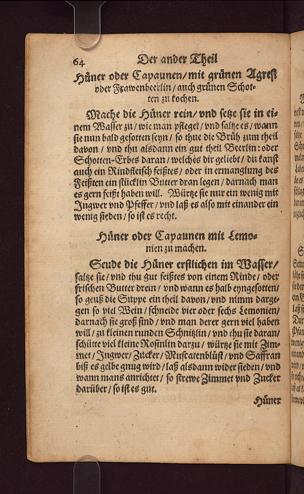 64 Der ander Theil
Hüner oder Capaunen/ mit grünen Agrest
oder Frawenbeerlin/ auch grünen Schot-
ten zu kochen.
Mache die Hüner rein/ vnd setze sie in ei-
nem Wasser zu/ wie man pfleget/ vnd saltze es/ wann
sie nun bald gesotten seyn/ so thue die Brüh zum theil
davon/ vnd thu alsdann ein gut theil Beerlin: oder
Schotten-Erbes daran/ welches dir geliebt/ du kanst
auch ein Rindfleisch feißtes/ oder in ermanglung des
Feißten ein stücklin Butter dran legen/ darnach man
es gern feißt haben will. Würtze sie nur ein wenig mit
Ingwer vnd Pfeffer/ vnd laß es also mit einander ein
wenig sieden/ so ist es recht.
Hüner oder Capaunen mit Lemo-
nien zu machen.
Seude die Hüner erstlichen im Wasser/
saltze sie/ vnd thu gut feißtes von einem Rinde/ oder
frischen Butter drein/ vnd wann es halb eyngesotten/
so geuß die Suppe ein theil davon/ vnd nimm darge-
gen so viel Wein/ schneide vier oder sechs Lemonien/
darnach sie groß sind/ vnd man derer gern viel haben
will/ zu kleinen runden Schnitzlin/ vnd thu sie daran/
schütte viel kleine Rosinlin darzu/ würtze sie mit Zim-
met/ Ingwer/ Zucker/ Muscatenblüst/ vnd Saffran
biß es gelbe gnug wird/ laß alsdann wider sieden/ vnd
wann mans anrichtet/ so strewe Zimmet vnd Zucker
darüber/ so ist es gut.
Hüner